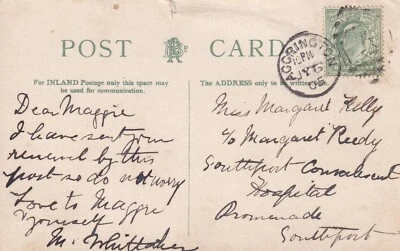 POST CARD
For INLAND Postage only this space may
be used for communication.
The ADDRESS only to be written
ACCRINGTON
JY 6
06
Dear Maggie
I have sent your
renewal by this
post so do not worry
Love to Maggie
& yourself
M. Whittaker
Miss Margaret Kelly
c/o Margaret Reedy
Southport Convalescent
Hospital
Promenade
Southport